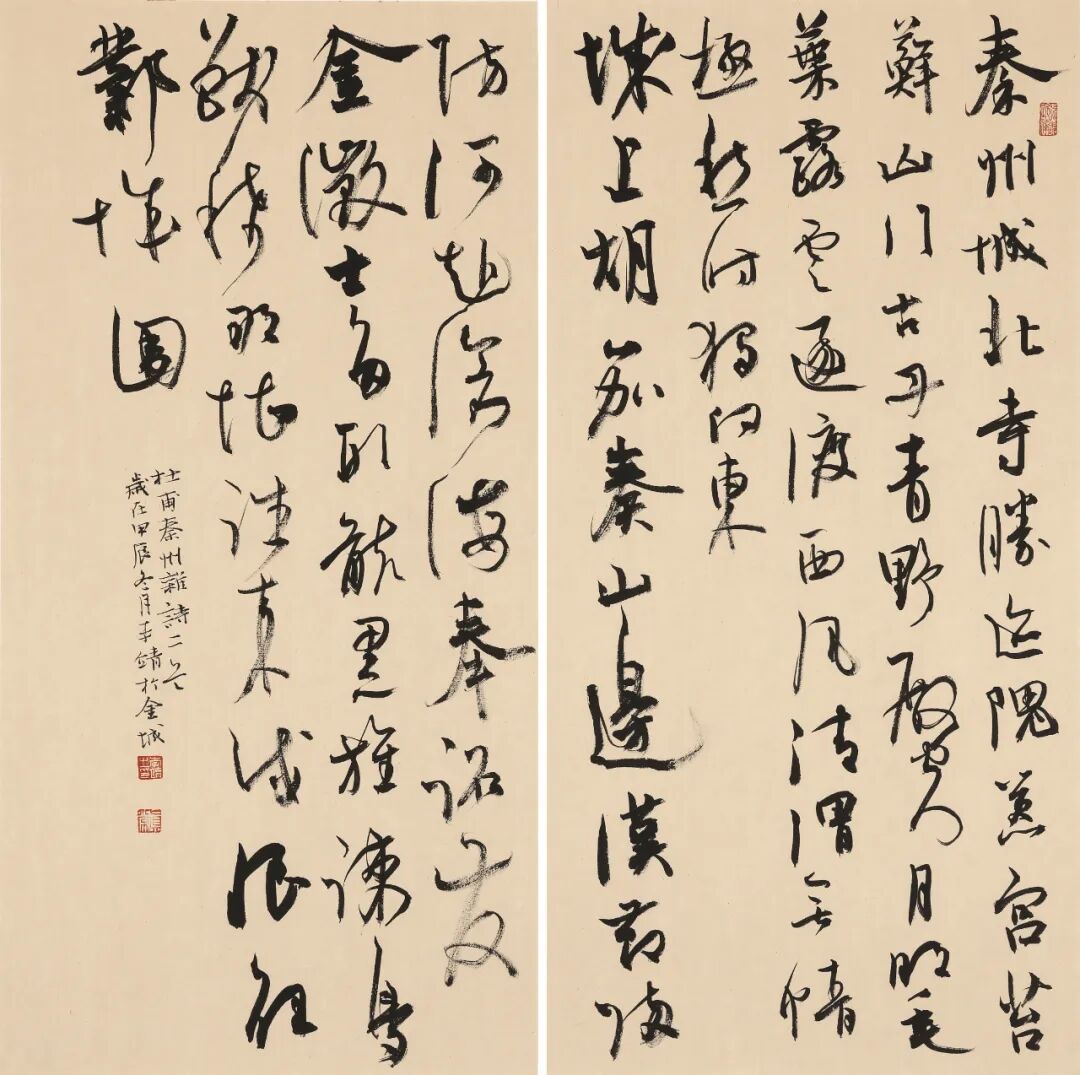 秦州城北寺勝迹隗嚣宫苔
蘚山门古丹青野殿空月明垂
葉露雲逐渡西风清渭无情
極愁时獨向東
城上胡笳奏山邊漢節歸
防河赴滄海奉詔發
金微士苦形骸黑旌疎鳥
獸稀那堪往来戍恨解
鄴城圍
杜甫秦州雜詩二首
歲在甲辰冬月於金城